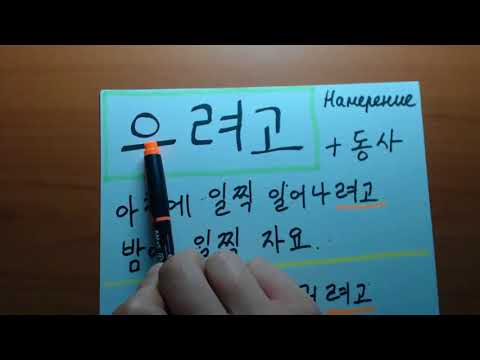 으려고
Намерение
+ 동사
일찍 일어나려고
일찍 자요.
려고